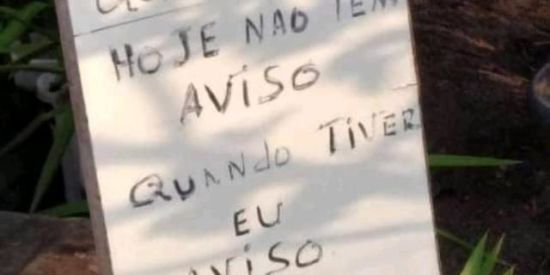 HOJE NAO TEM
AVISO
QUANDO TIVER
EU
AVISO